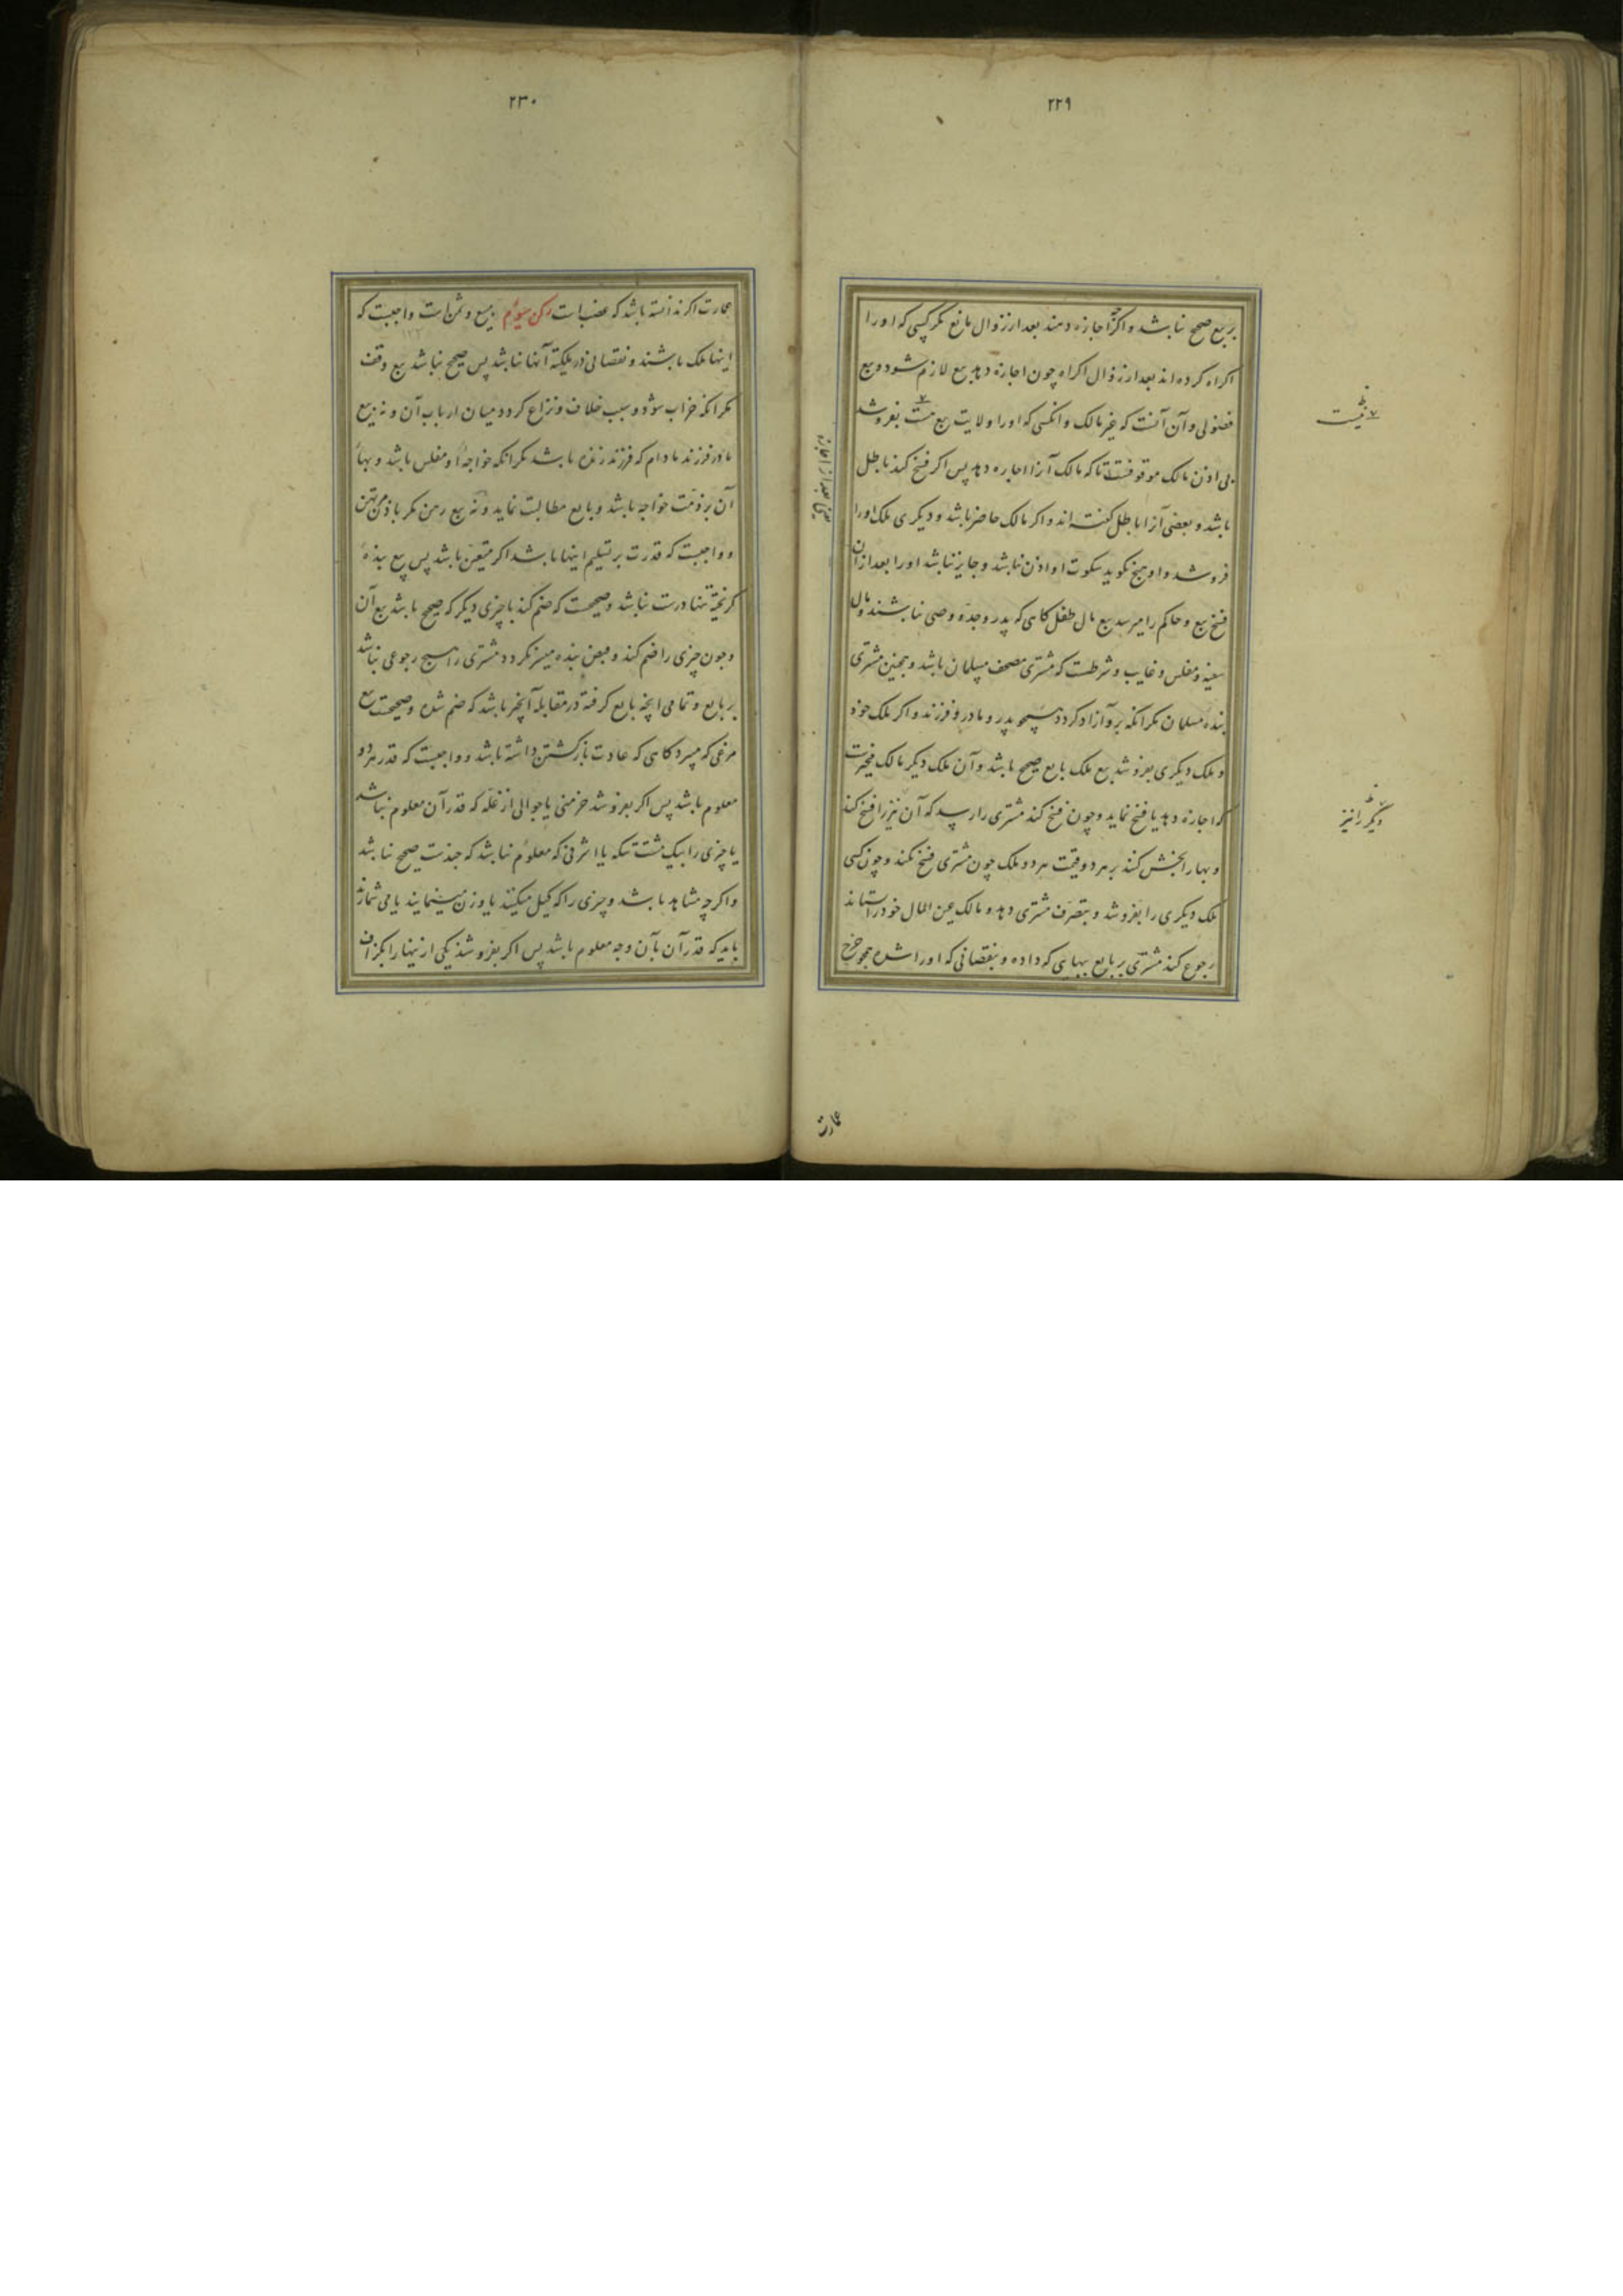 ۲۲۹
بر بیع صحیح نباشد و اکرچه اجازه دهند بعد از زوال مانع مکر کسی که او را
اکراه کرده اند بعد از زوال اکراه چون اجازه دهد بیع لازم شود و بیع
فضولی و آن آنست که غیر مالک و انکسی که او را ولایت بیع نیست بفروشد
بی اذن مالک موقوفست تا که مالک آنرا اجازه دهد پس اکر فسخ کند باطل
باشد و بعضی آنرا باطل کفته اند و اکر مالک حاضر باشد و دیکری ملک او را
فروشد و او هیچ نکوید سکوت او اذن نباشد و جایز نباشد او را بعد از آن
فسخ بیع و حاکم را میرسد بیع مال طفل کاهی که پدر و جد و وصی نباشند و مال
سفیه و مفلس و غایب و شرطست که مشتری مصحف مسلمان باشد و همچنین مشتری
بنده مسلمان مکر انکه برو آزاد کردد همچو پدر و مادر و فرزند و اکر ملک خود
و ملک دیکری بفروشد بیع ملک بایع صحیح باشد و آن ملک دیکر مالک مخیرست
که اجازه دهد یا فسخ نماید و چون فسخ کند مشتری را رسد که آن نیز را فسخ کند
و بها را بخش کنند بر هر دو قیمت هر دو ملک چون مشتری فسخ نکند و چون کسی
ملک دیکری را بفروشد و بتصرف مشتری دهد و مالک عین المال خود را ستاند
رجوع کند مشتری بر بایع ببهای که داده و بنقصانی که او را شده همچو خرج
یعنی بعد از اجازه
نیست
دیکر را نیز
عمارت
۲۳۰
عمارت اکر ندانسته باشد که غصب است رکن سیوم مبیع و ثمن است واجبست که
اینها ملک باشند و نقصانی در ملکیة آنها نباشد پس صحیح نباشد بیع وقف
مکر انکه خراب شود و سبب خلاف و نزاع کردد میان ارباب آن و نه بیع
مادر فرزند مادام که فرزند زنده باشد مکر انکه خواجه او مفلس باشد و بهاء
آن بر ذمت خواجه باشد و بایع مطالبت نماید و نه بیع رهن مکر باذن مرتهن
و واجبست که قدرت بر تسلیم اینها باشد اکر متعین باشد پس بیع بنده
کریخته تنها درست نباشد و صحیحست که ضم کند با چیزی دیکر که صحیح باشد بیع آن
و چون چیزی را ضم کند و قبض بنده میسر نکردد مشتری را هیچ رجوعی نباشد
بر بایع و تمامی انچه بایع کرفته در مقابله آنچیز باشد که ضم شده و صحیحست بیع
مرغی که میپرد کاهی که عادت بازکشتن داشته باشد و واجبست که قدر هر دو
معلوم باشد پس اکر بفروشد خرمنی یا جوالی از غله که قدر آن معلوم نباشد
یا چیزی را بیک مشت تنکه یا اشرفی که معلوم نباشد که چندست صحیح نباشد
و اکرچه مشاهد باشد و چیزی را که کیل میکنند یا وزن مینمایند یا می شمارند
باید که قدر آن بآن وجه معلوم باشد پس اکر بفروشد یکی از ینها را بکزاف